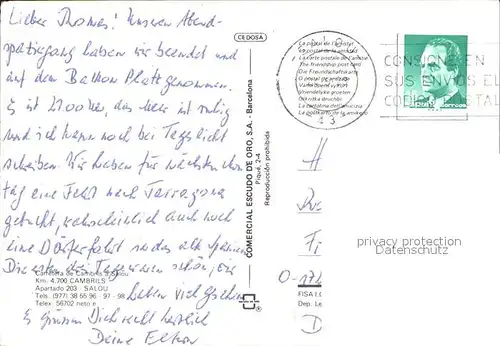 Lieber Thomas! Unseren Abend-
spaziergang haben wir beendet und
auf dem Balkon Platz genommen.
Es ist 21.00 Uhr, das Meer ist ruhig
und ich kann noch bei Tageslicht
schreiben. Wir haben für nächsten Don
tag eine Fahrt nach Tarragona
gebucht, wahrscheinlich auch noch
eine Dörferfahrt
Die ersten drei Tage waren schön, wir
haben viel gesehen
Es grüssen Dich recht herzlich
Deine Eltern
Carretera de Cambrils a Salou
Km. 4,700 CAMBRILS
Apartado 203 - SALOU
Tels. (977) 38 55 96 - 97 - 98
Telex 56702 neto e
CEDOSA
COMERCIAL ESCUDO DE ORO, S.A. - Barcelona
Piqué, 2-4
Reproducción prohibida
La postal de l'amistat
La postal de la amistad
La carte postale de l'amitié
The friendship post card
Die Freundschaftskarte
O postal da amizade
Vriendelijke groeten
La cartolina dell'amicizia
La postkarto de la amikeco
43
CONSIGNE EN
SUS ENVIOS EL
CODIGO POSTAL
FISA I.G
Dep. Le
privacy protection
Datenschutz